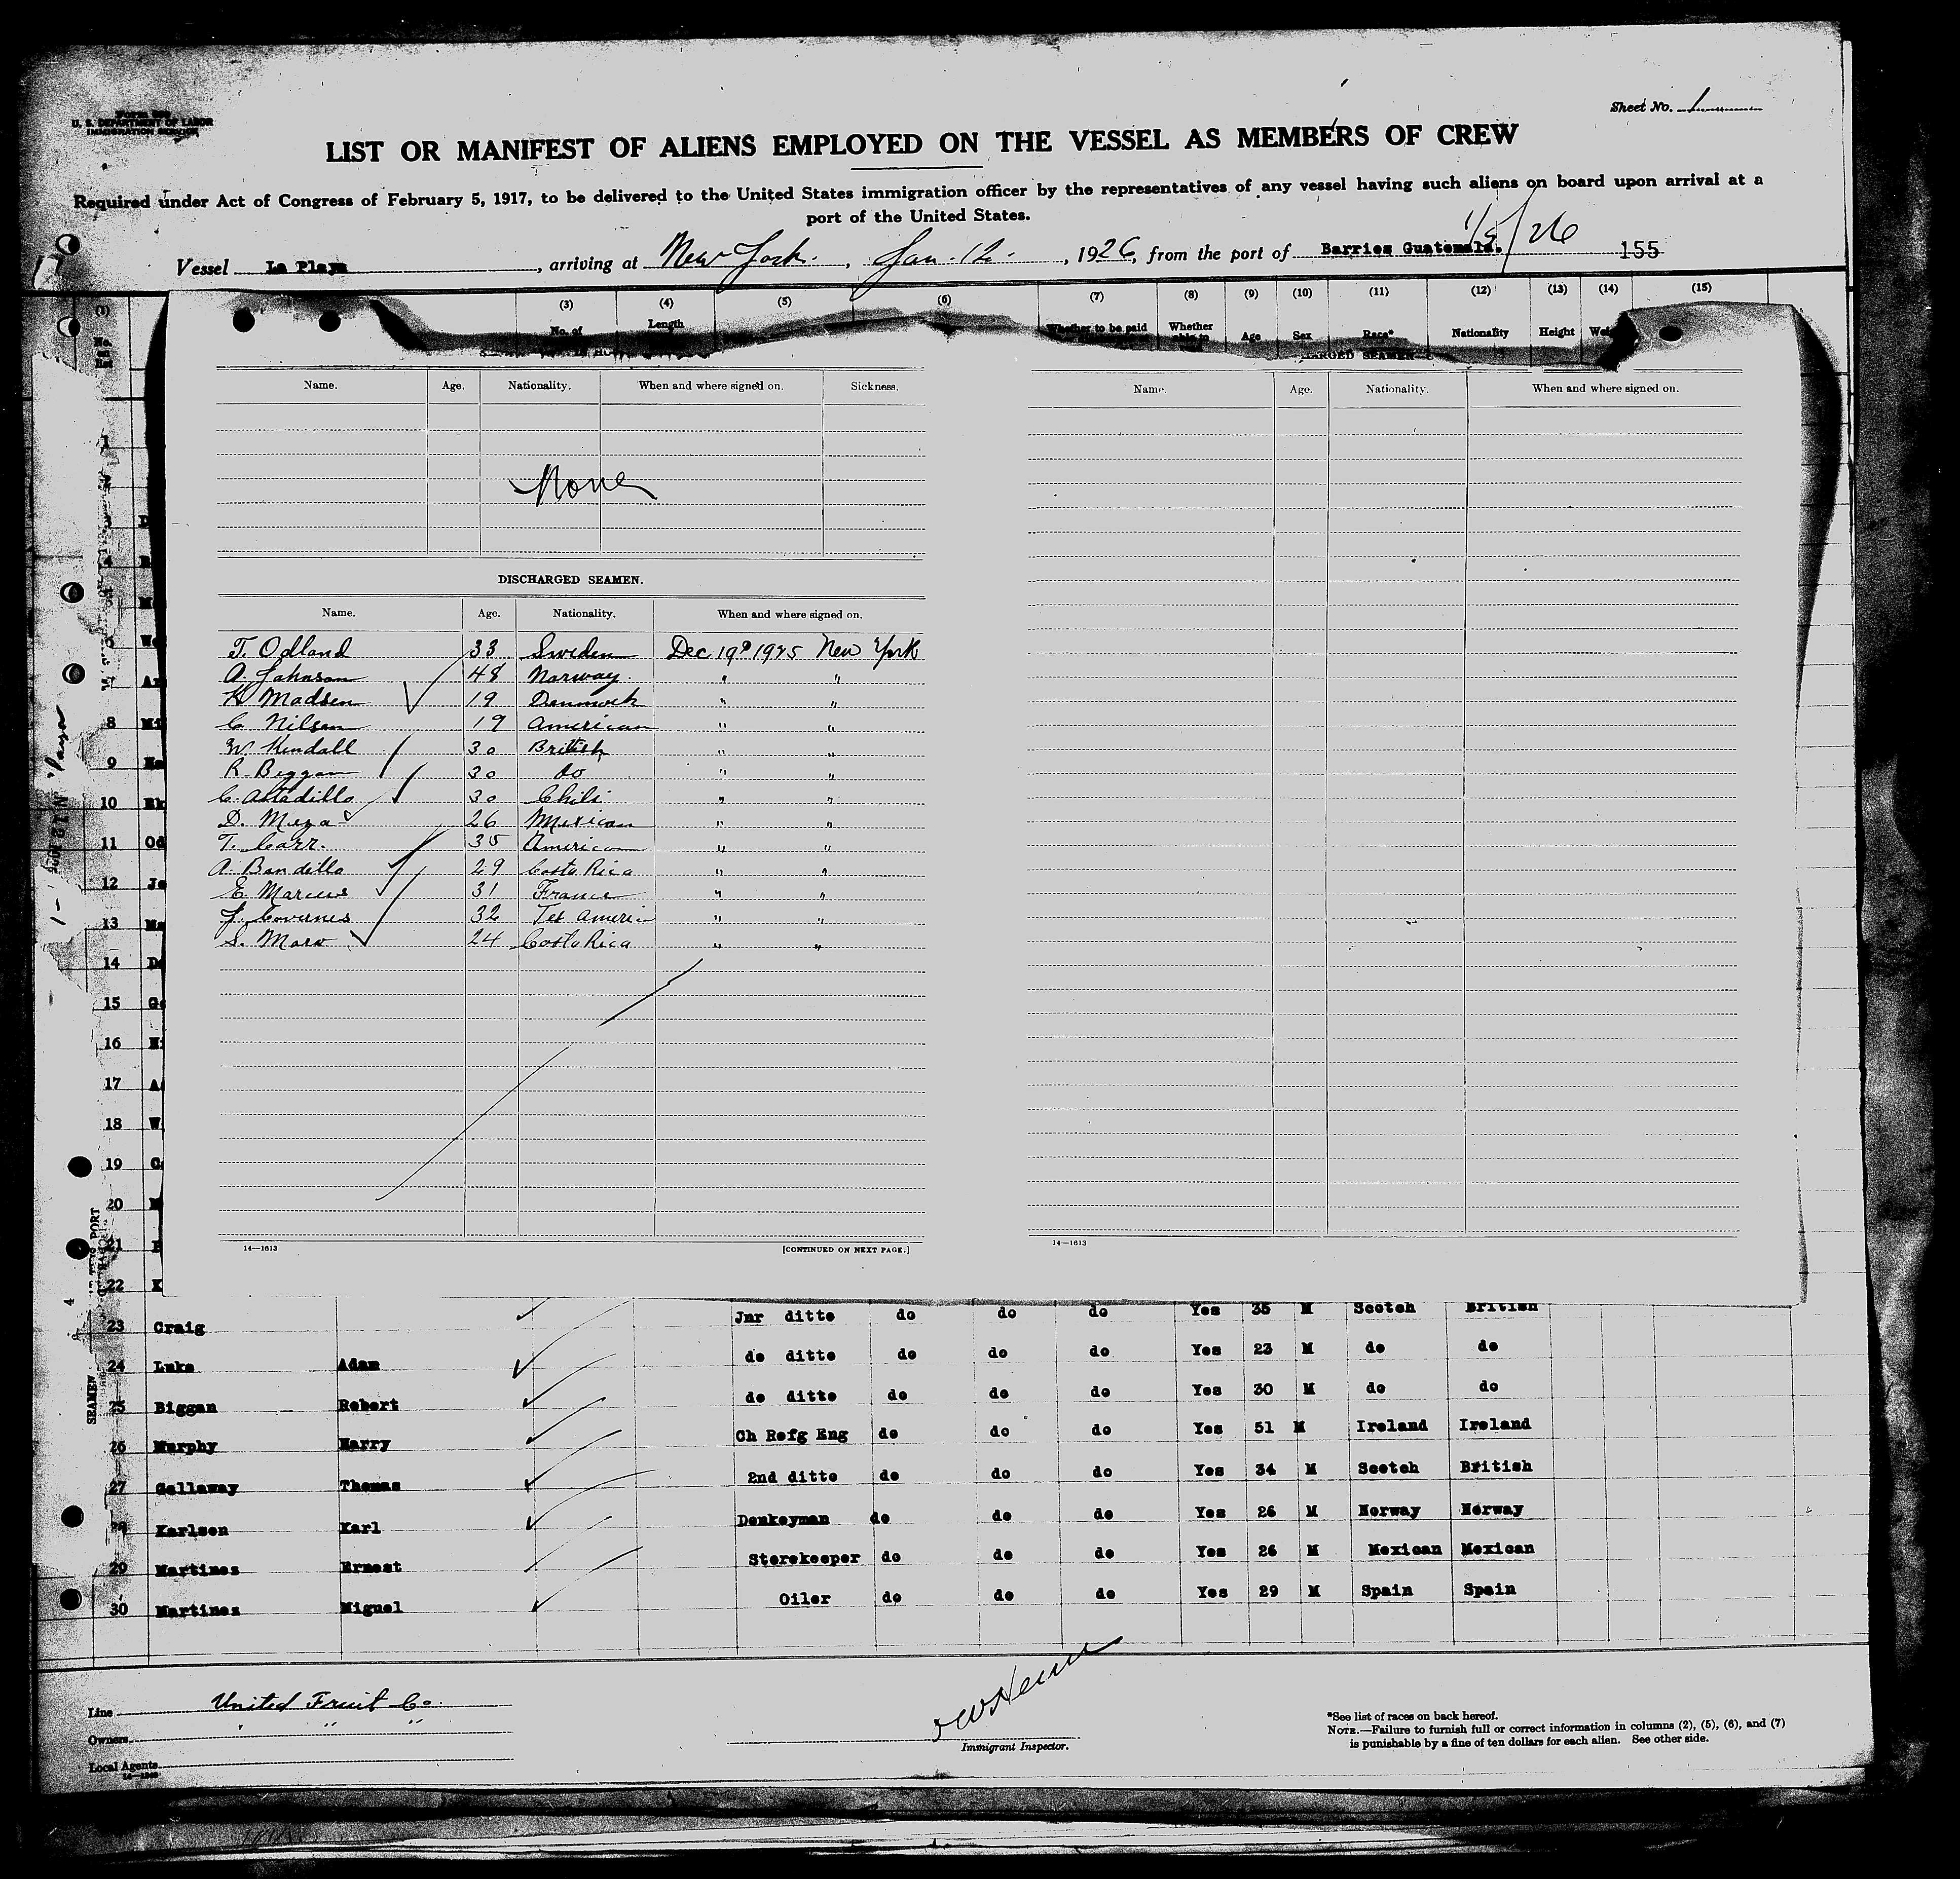 U. S. DEPARTMENT OF LABOR
IMMIGRATION SERVICE
Sheet No. 1
LIST OR MANIFEST OF ALIENS EMPLOYED ON THE VESSEL AS MEMBERS OF CREW
Required under Act of Congress of February 5, 1917, to be delivered to the United States immigration officer by the representatives of any vessel having such aliens on board upon arrival at a
port of the United States.
Vessel La Playa, arriving at New York, Jan. 12, 1926, from the port of Barrios Guatemala. 155
(1) (3) (4) (5) (6) (7) (8) (9) (10) (11) (12) (13) (14) (15)
No. of Length Whether to be paid Whether Age Sex Race* Nationality Height
Name. Age. Nationality. When and where signed on. Sickness.
None
DISCHARGED SEAMEN.
Name. Age. Nationality. When and where signed on.
T. Odland 33 Sweden Dec 19th 1925 New York
A. Johnson 48 Norway " "
K Madsen 19 Denmark " "
C Nilsen 19 American " "
W. Kendall 30 British " "
R. Biggan 30 do " "
C. Astadillo 30 Chili " "
D. Meza 26 Mexican " "
T. Carr. 35 American " "
A. Bandillo 29 Costa Rica " "
E. Marcus 31 France " "
J. Coversnes 32 " "
S. Mora 24 Costa Rica " "
14—1613 [CONTINUED ON NEXT PAGE.]
Name. Age. Nationality. When and where signed on.
14—1613
23 Craig Jnr ditto do do do Yes 35 M Scotch British
24 Luke Adam do ditto do do do Yes 23 M do do
25 Biggan Robert do ditto do do do Yes 30 M do do
26 Murphy Harry Ch Refg Eng do do do Yes 51 M Ireland Ireland
27 Gallaway Thomas 2nd ditto do do do Yes 34 M Scotch British
28 Karlsen Karl Donkeyman do do do Yes 26 M Norway Norway
29 Martines Ernest Storekeeper do do do Yes 26 M Mexican Mexican
30 Martines Miguel Oiler do do do Yes 29 M Spain Spain
Line United Fruit Co.
Owners " " "
Local Agents
Immigrant Inspector.
*See list of races on back hereof.
NOTE.—Failure to furnish full or correct information in columns (2), (5), (6), and (7)
is punishable by a fine of ten dollars for each alien. See other side.